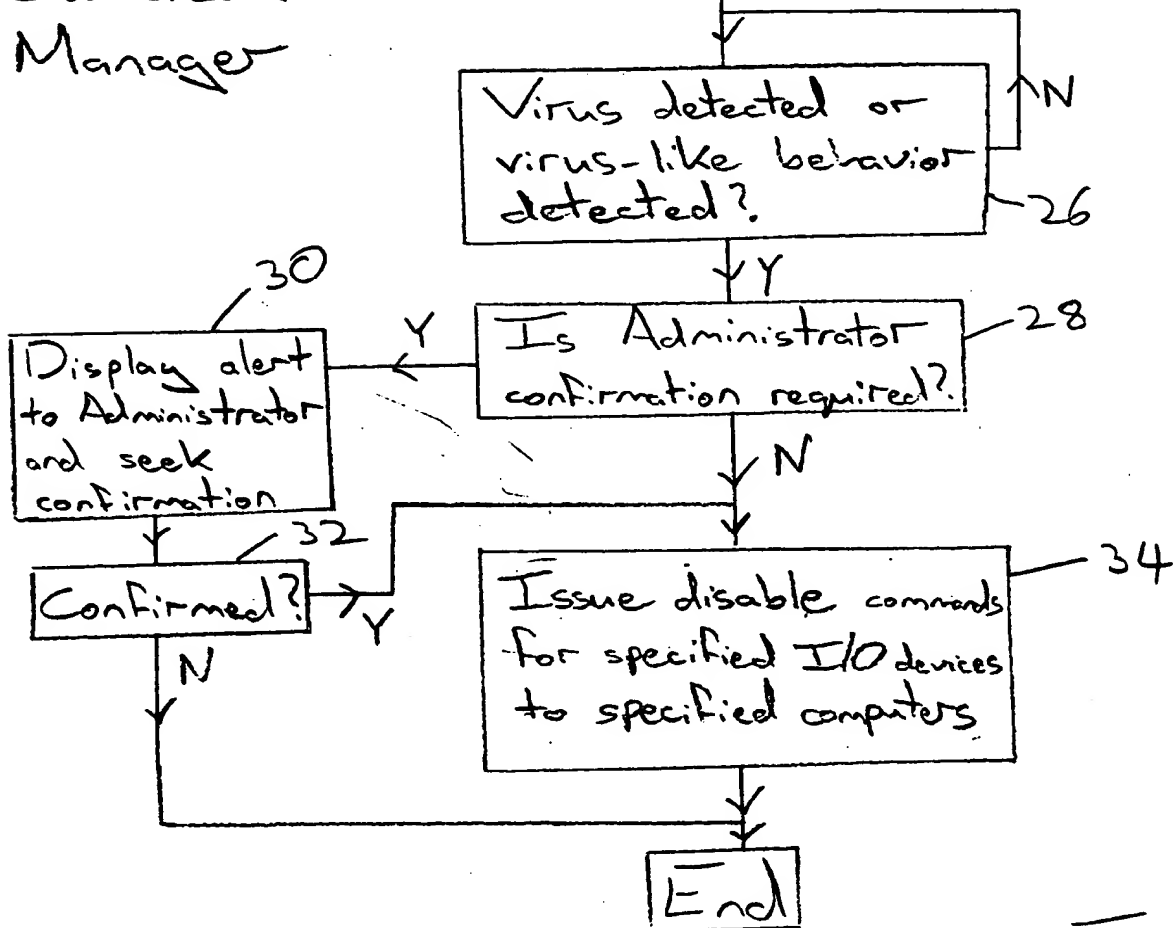 Manager
Virus detected or
virus-like behavior
detected?
N
26
Y
Is Administrator
confirmation required?
28
Y
N
30
Display alert
to Administrator
and seek
confirmation
32
Confirmed?
Y
N
34
Issue disable commands
for specified I/O devices
to specified computers
End